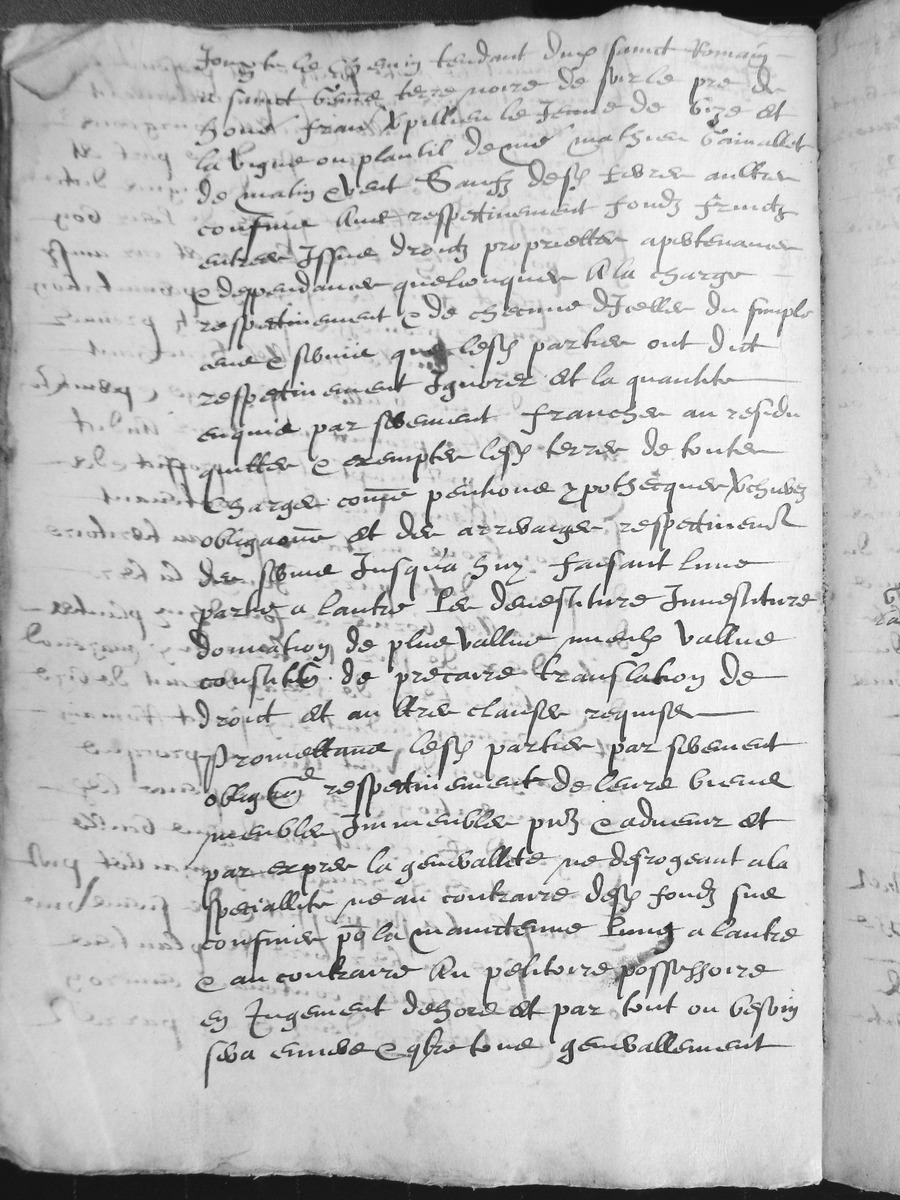 Jouxte le chemin tendant dud sainct Romain
a sainct terre noire de sur le pre de
hono franc le Jeune de et
la vigne ou plantil de me mathieu
de matin & vent Sauf desd ferres aultres
confins Avec respectivement fondz fruictz
entree Issue droictz proprietter apertenances
& dependances quelconques A la charge
respectivement & de chacune dicelles du simple
cens & servis que lesd parties ont dict
respectivement Ignorer et la quantite
enquis par serement franches au residu
quittes & exemptes lesd terres de toutes
charges come pentions ypothecques
obligaōns et des arreraiges respectivemt
des servis Jusqua huy faisant lune
partie a lautre Les devestiture Investiture
donnation de plus vallue mieulx vallue
constitōn de precaire translation de
droict et aultres clauses requises
Promettans lesd parties par serement
obligōn respectivement de leurs biens
meubles Immeubles pntz & advenir et
par expres la generallite ne desrogeant a la
speciallite ne au contraire desd fondz sus
confines po la maintenue Lung a lautre
& au contraire Au petitoire possessoire
en Jugement dehors et par tout ou besoin
sera envers & contre tous generallement